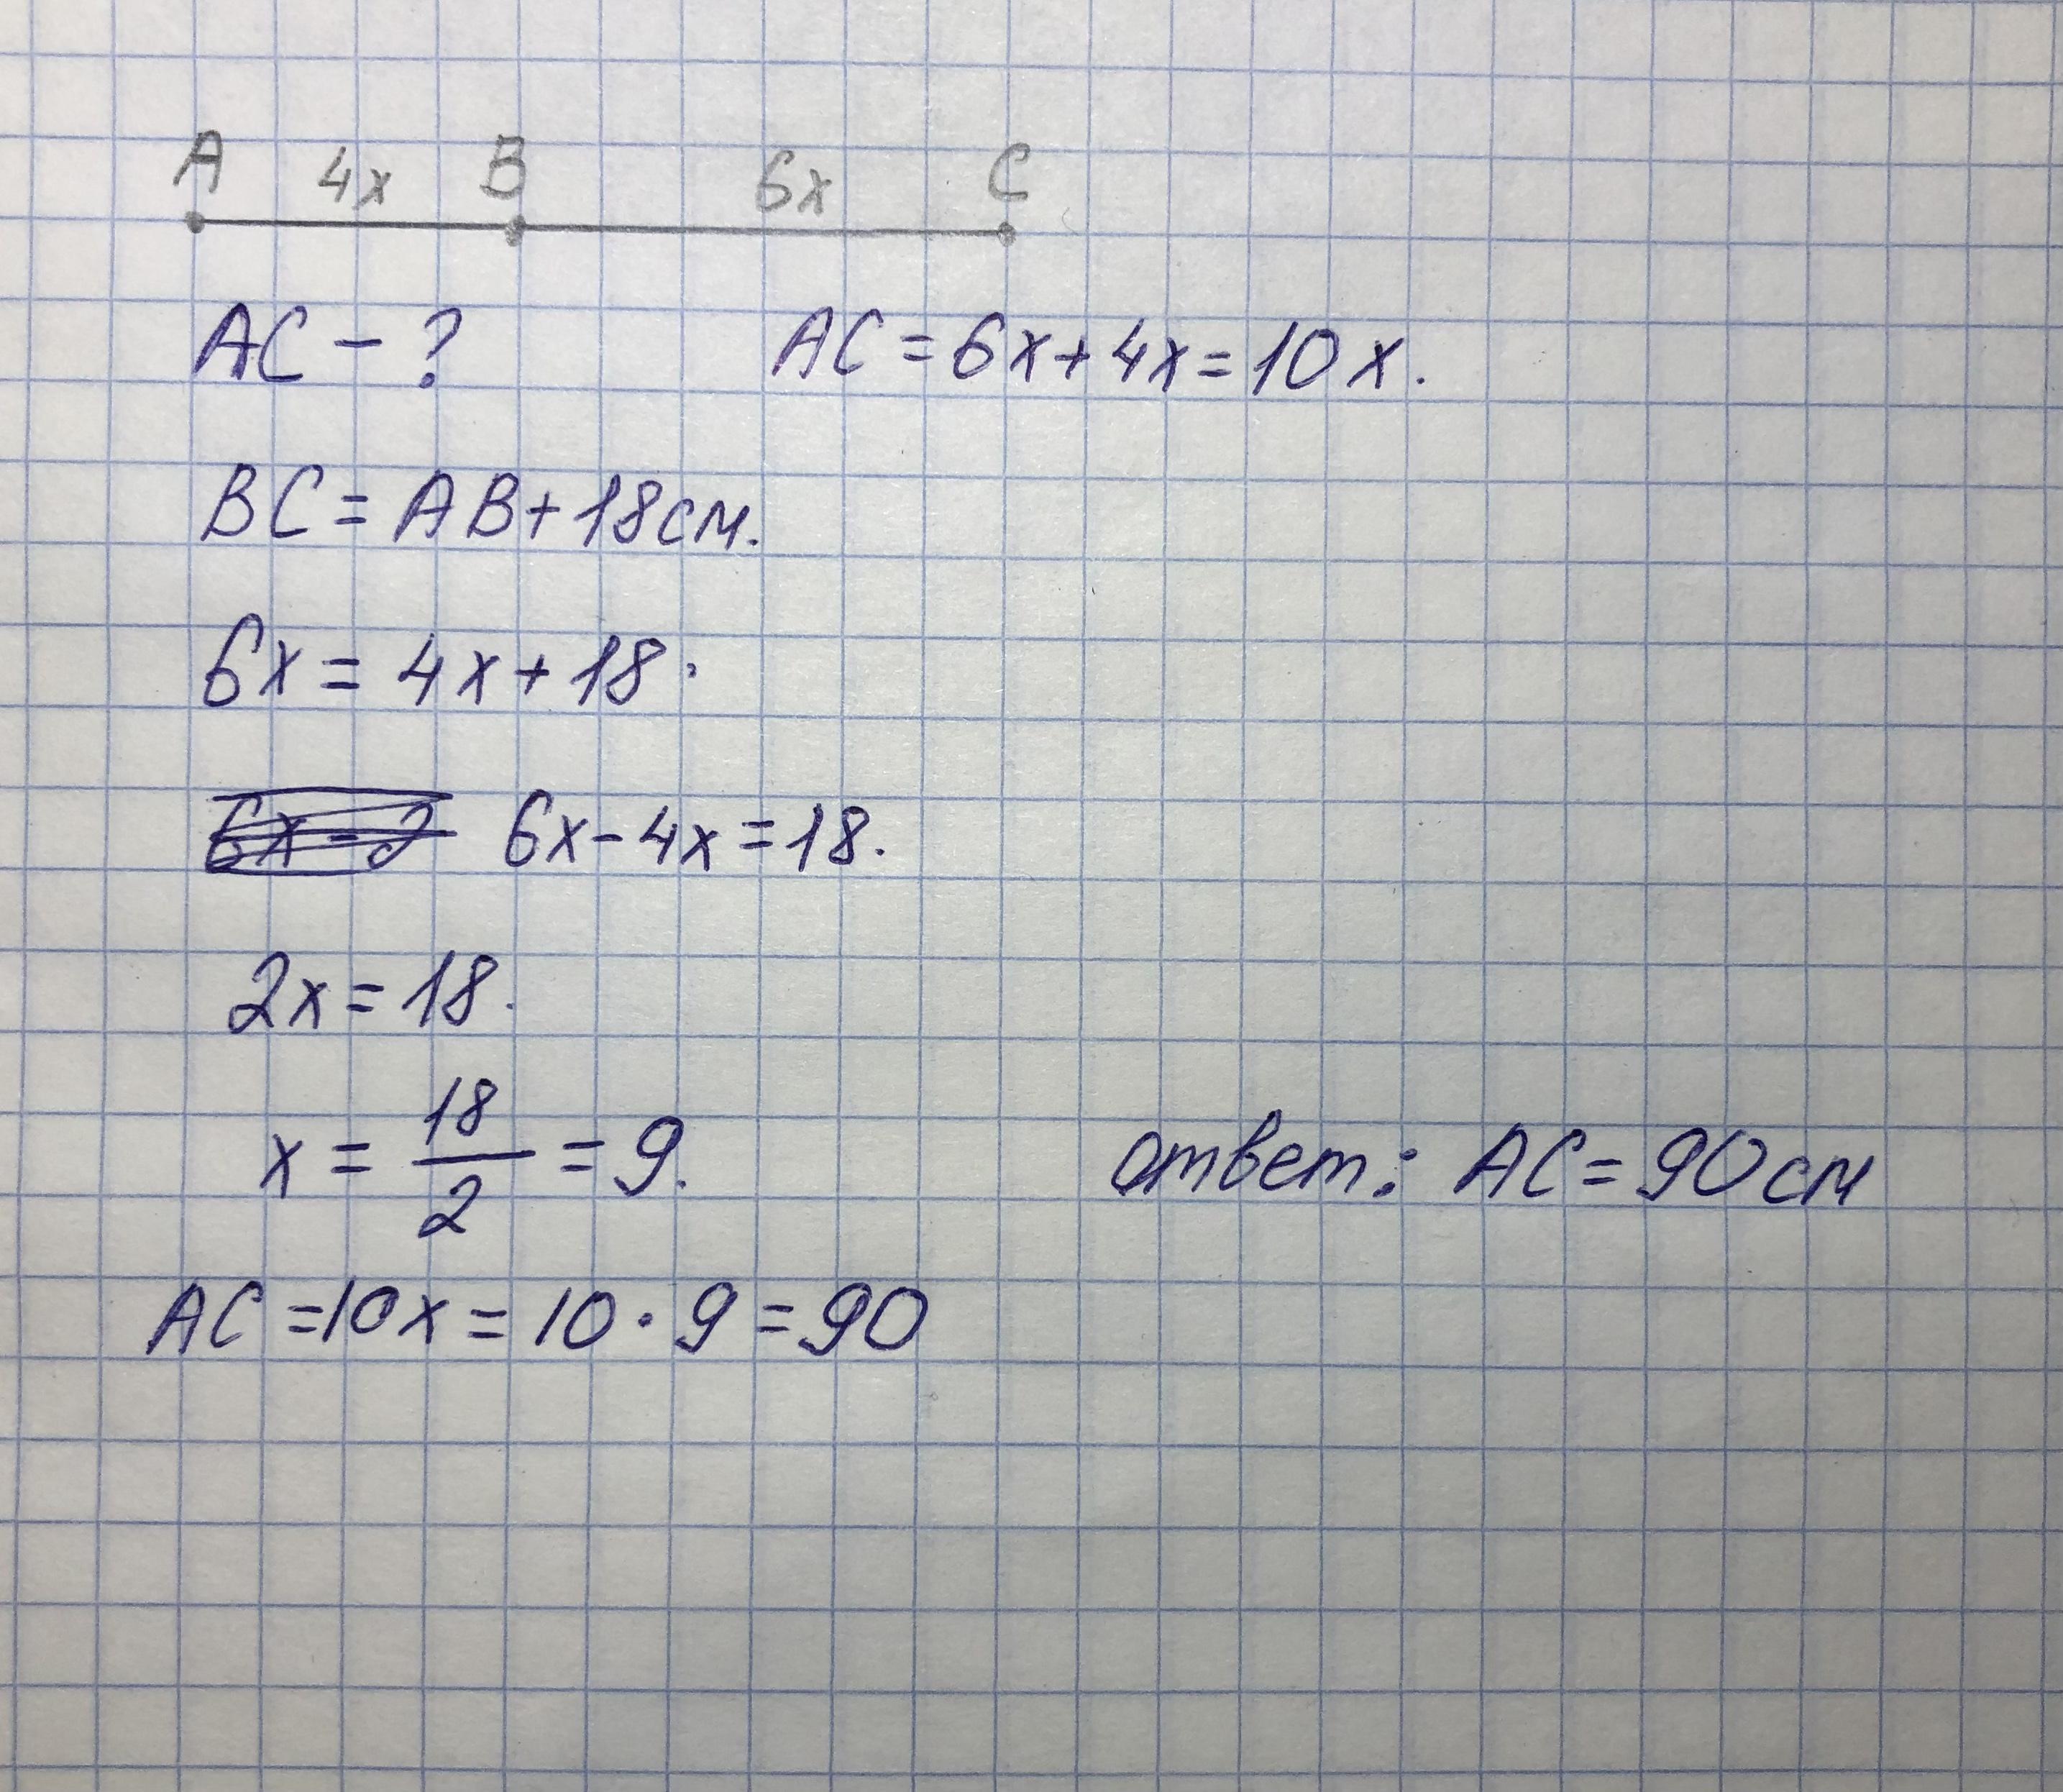 A 4x B 6x C
AC - ? AC = 6x + 4x = 10x.
BC = AB + 18см.
6x = 4x + 18.
6x - 4x = 18.
2x = 18.
x = 18/2 = 9.
ответ: AC = 90см
AC = 10x = 10 · 9 = 90